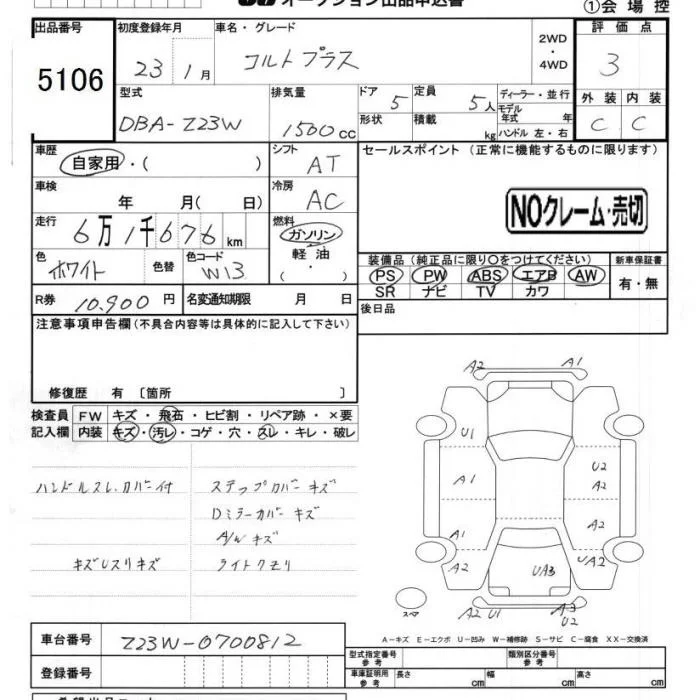 オークション出品申込書
①会場控
出品番号 初度登録年月 車名・グレード 2WD・4WD 評価点
5106 23 1月 コルトプラス 3
型式 排気量 ドア 定員 ディーラー・並行 外装 内装
DBA-Z23W 1500cc 5 5人 モデル年式 年 C C
形状 積載 kg ハンドル 左・右
車歴 シフト セールスポイント (正常に機能するものに限ります)
自家用・( ) AT
車検 冷房
年 月( 日) AC
NOクレーム・売切
走行 燃料
6万1千676km ガソリン
軽油
( ・ )
色 色替 色コード
ホワイト W13
装備品 (純正品に限り○をつけてください) 新車保証書
PS PW ABS エアB AW 有・無
SR ナビ TV カワ
R券 10,900円 名変通知期限 月 日
後日品
注意事項申告欄 (不具合内容等は具体的に記入して下さい)
修復歴 有 〔箇所 〕
検査員 FW キズ・飛石・ヒビ割・リペア跡・×要
記入欄 内装 キズ・汚レ・コゲ・穴・スレ・キレ・破レ
ハンドルスレ.カバー付 ステップカバーキズ
Dミラーカバーキズ
A/Wキズ
キズUスリキズ ライトクモリ
A2 A1
U1
A1 U2
A2
A1 A2
A2 UA3 UA2
スペア A2 U1 A3
U2
A-キズ E-エクボ U-凹み W-補修跡 S-サビ C-腐食 XX-交換済
車台番号 Z23W-0700812
型式指定番号 参考 類別区分番号 参考
登録番号
車庫証明用 参考 長さ cm 幅 cm 高さ cm
希望出品コーナー